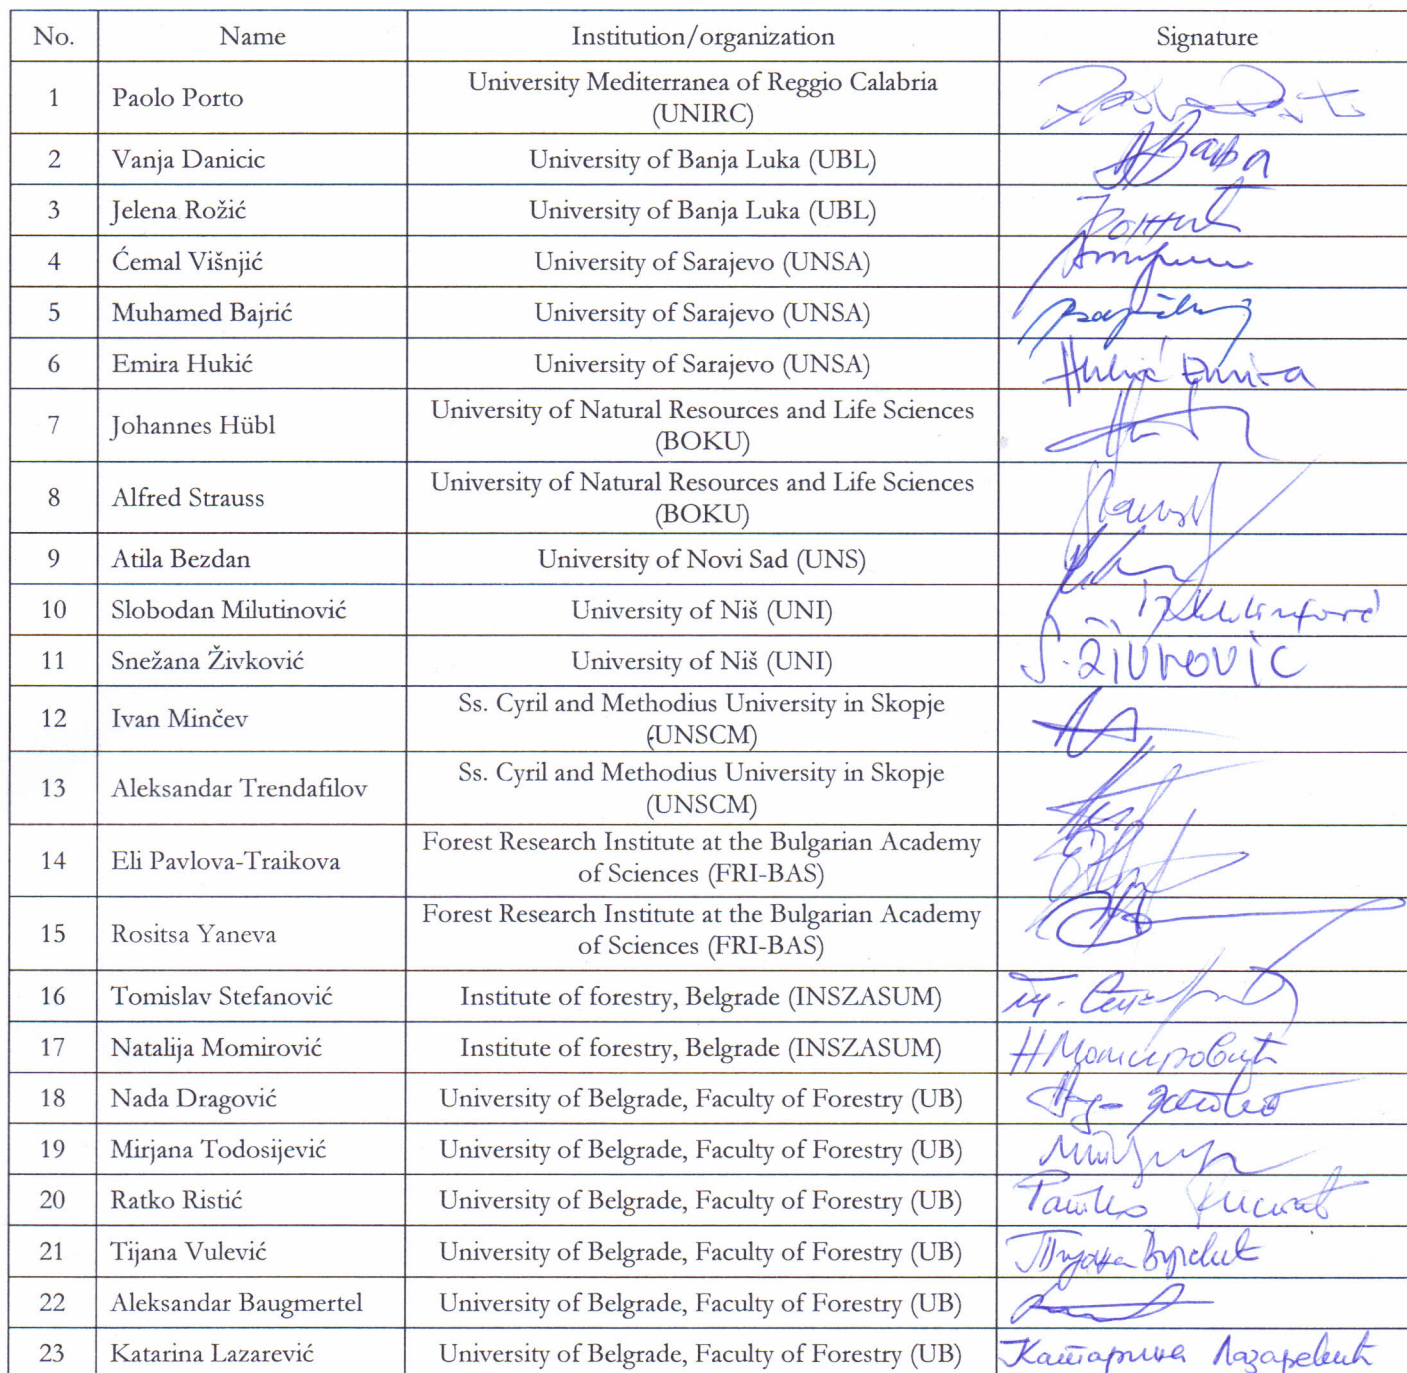 No. Name Institution/organization Signature
1 Paolo Porto University Mediterranea of Reggio Calabria
(UNIRC)
2 Vanja Danicic University of Banja Luka (UBL)
3 Jelena Rožić University of Banja Luka (UBL)
4 Ćemal Višnjić University of Sarajevo (UNSA)
5 Muhamed Bajrić University of Sarajevo (UNSA)
6 Emira Hukić University of Sarajevo (UNSA) Hukić Emira
7 Johannes Hübl University of Natural Resources and Life Sciences
(BOKU)
8 Alfred Strauss University of Natural Resources and Life Sciences
(BOKU)
9 Atila Bezdan University of Novi Sad (UNS)
10 Slobodan Milutinović University of Niš (UNI)
11 Snežana Živković University of Niš (UNI) S. ŽIVKOVIĆ
12 Ivan Minčev Ss. Cyril and Methodius University in Skopje
(UNSCM)
13 Aleksandar Trendafilov Ss. Cyril and Methodius University in Skopje
(UNSCM)
14 Eli Pavlova-Traikova Forest Research Institute at the Bulgarian Academy
of Sciences (FRI-BAS)
15 Rositsa Yaneva Forest Research Institute at the Bulgarian Academy
of Sciences (FRI-BAS)
16 Tomislav Stefanović Institute of forestry, Belgrade (INSZASUM)
17 Natalija Momirović Institute of forestry, Belgrade (INSZASUM) Н Момировић
18 Nada Dragović University of Belgrade, Faculty of Forestry (UB)
19 Mirjana Todosijević University of Belgrade, Faculty of Forestry (UB)
20 Ratko Ristić University of Belgrade, Faculty of Forestry (UB) Ратко Ристић
21 Tijana Vulević University of Belgrade, Faculty of Forestry (UB) Тијана Вулевић
22 Aleksandar Baugmertel University of Belgrade, Faculty of Forestry (UB)
23 Katarina Lazarević University of Belgrade, Faculty of Forestry (UB) Катарина Лазаревић